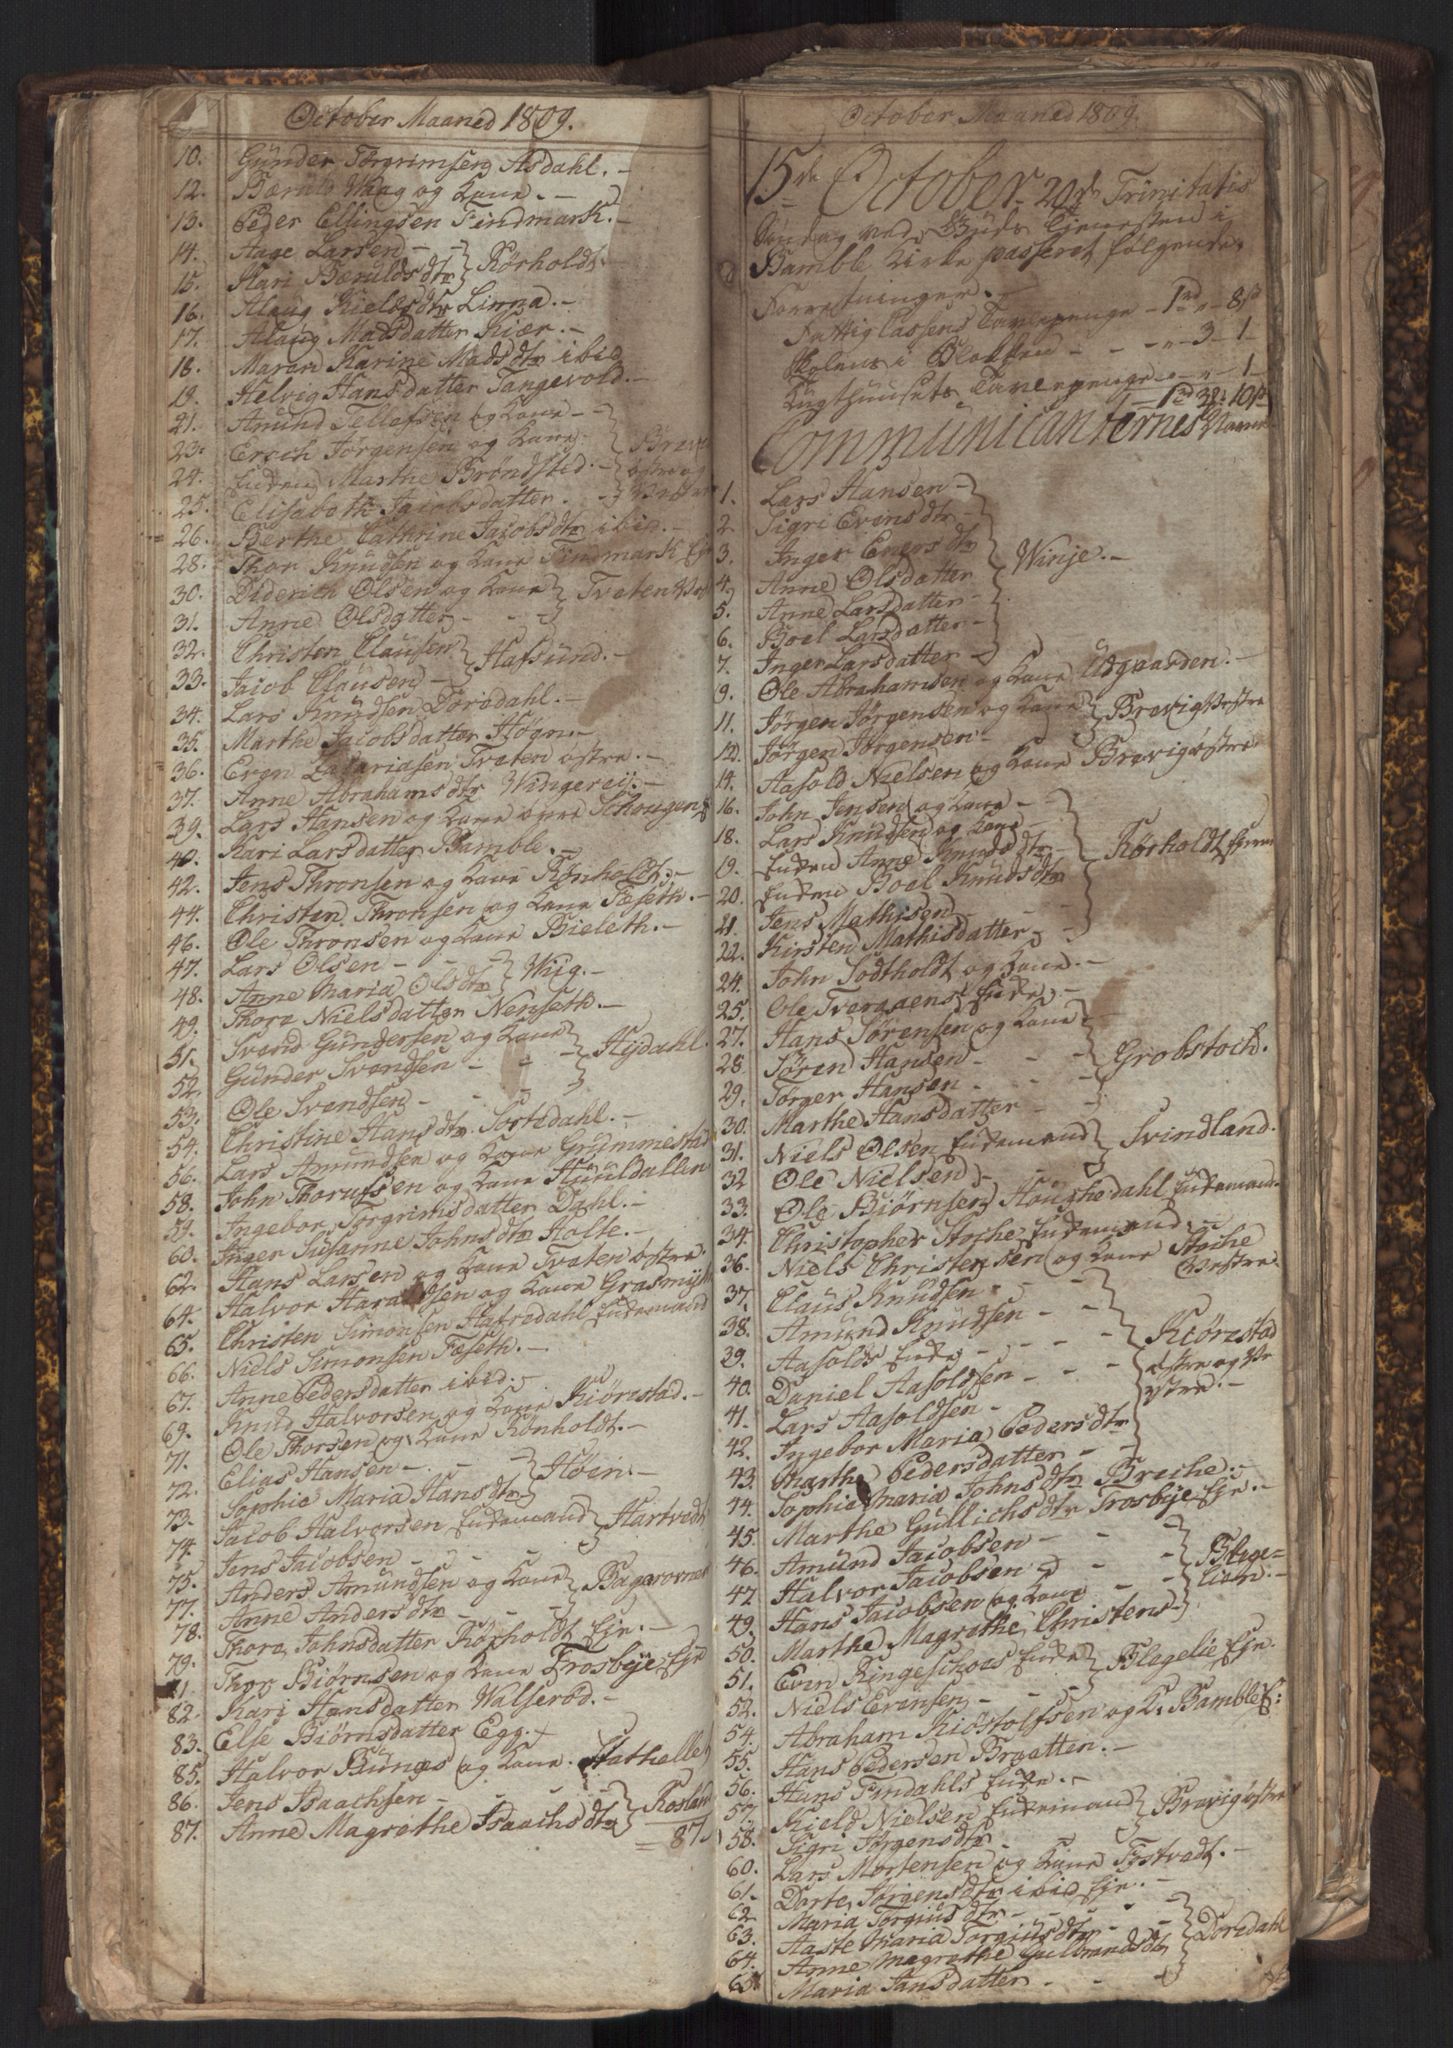 October Maaned 1809.
10. Gunder Torgrimsen Asdahl. -
12. Bærulv Waag og Kone. -
13. Peder Ellingsen Findmark. -
14. Aage Larsen - -
15. Kari Bærulvs dtr } Rørholdt.
16. Alaug Kields dtr Linna. -
17. Alaug Madsdatter Kiær. -
18. Maren Karine Mads dtr ibid
19. Helvig Hansdatter Tangevold. -
21. Amund Tellefsen og Kone - -
23. Erich Jørgensen og Kone.
24. Enken Marthe Brøndsted. -
25. Elisabeth Jacobsdatter. -
26. Berthe Cathrine Jacobs dtr ibid. -
28. Thor Knudsen og Kone Findmark Eje
30. Diderich Olsen og Kone } Tvaten
31. Anne Olsdatter - - -
32. Christen Clausen } Hafsund. -
33. Jacob Clausen -
34. Lars Knudsen Doredahl. -
35. Marthe Jacobsdatter Høgn. -
36. Even Zacariasen Tvaten østre. -
37. Anne Abrahams dtr Widigereij. -
39. Lars Hansen og Kone øvre Schougen
40. Kari Larsdatter Bamble. -
42. Jens Thronsen og Kone Rønholdt. -
44. Christen Thronsen og Kone Fæseth. -
46. Ole Thronsen og Kone Bieleth. -
47. Lars Olsen - - -
48. Anne Maria Ols dtr } Wiig. -
49. Thore Nielsdatter Nenseth. -
51. Svend Gundersen og Kone
52. Gunder Svendsen - - - } Heydahl.
53. Ole Svendsen - - -
54. Christine Hans dtr Sortedahl. -
56. Lars Amundsen og Kone Grummestad
58. John Thorufsen og Kone
59. Ingebor Torgrimsdatter Dahl. -
60. Inger Susanne Johns dtr Holte. -
62. Hans Larsen og Kone Tvaten østre.
64. Halvor Haraldsen og Kone Grasmyhr
65. Christen Simonsen Hafredahl Enkemand
66. Niels Simonsen Fæseth. -
67. Anne Pedersdatter ibid. -
69. Knud Halvorsen og Kone Kiørestad. -
71. Ole Thorsen og Kone Rønholdt. -
72. Elias Hansen - - - -
73. Sophie Maria Hans dtr } Høin. -
74. Jacob Halvorsen Enkemand } Hartvedt
75. Jens Jacobsen - - - -
77. Anders Amundsen og Kone } Bagerovnen
78. Anne Anders dtr - - -
79. Thora Johnsdatter Rørholdt Eje. -
81. Thor Biørnsen og Kone Trosbye Eje
82. Kari Hansdatter Valserød. -
83. Else Biørnsdatter Egg.
85. Halvor Bunges og Kone. Stathelle
86. Jens Isaachsen - - - -
87. Anne Magrethe Isaachs dtr } Rosland
= 87.
October Maaned 1809.
15de October 20de Trinitatis
Søndag ved Guds Tjenesten i
Bamble Kirke passeret følgende
Forretninger. -
Fattig Cassens Tavlepenge - 1rd - 8s
Skolens i Blokken - - - - 3 - 1 -
Tugthuusets Tavlepenge - - - 1 -
1rd 3 10s
Communicanternes Navne
1. Lars Hansen -
2. Sigri Evens dtr
3. Inger Eners dtr
4. Anne Olsdatter } Winje. -
5. Anne Larsdatter -
6. Boel Larsdatter -
7. Inger Larsdatter -
9. Ole Abrahamsen og Kone Udgaarden. -
11. Jørgen Jørgensen og Kone } Brevig Vestre
12. Jørgen Jørgensen -
14. Aasold Nielsen og Kone Brevig østre
16. John Jensen og Kone - -
18. Lars Knudsen og Kone -
19. Enken Anne Knuds dtr -
20. Enken Boel Knuds dtr } Rørholdt
21. Jens Mathisen - - -
22. Kirsten Mathisdatter - -
24. John Todtholdt og Kone. -
25. Ole Tveraaens Enke. -
27. Hans Sørensen og Kone -
28. Søren Hansen - - - } Grobstoch.
29. Tørger Hansen - - -
30. Marthe Hansdatter - -
31. Niels Olsen Enkemand } Svindland.
32 Ole Nielsen -
33. Ole Biørnsen Haukedahl Enkemand.
34 Christopher Asche Enkemand. -
36. Niels Christensen og Kone Asche Vestre.
37. Claus Knudsen - - -
38. Amund Knudsen - -
39. Aasolds Enke - - - } Kiørestad
40. Daniel Aasoldsen - - østre og Ve
41. Lars Aasoldsen - stre. -
42. Ingebor Maria Peders dtr
43. Marthe Pedersdatter - -
44. Sophie Maria Johns dtr Breche. -
45. Marthe Gullichs dtr Trosbye Eje. -
46. Amund Jacobsen - - -
47 Halvor Jacobsen - - - } Blege=
49. Hans Jacobsen og Kone - - lien. -
50. Marthe Magrethe Christens -
51. Even Ringeschoes Enke } Blegelie Eje.
52. Niels Evensen - - -
54. Abraham Kiøstolfsen og K. Bamble E:
55. Hans Pedersen Braatten. -
56. Hans Findahls Enke. -
57. Kield Nielsen Enkemand } Brevig østre
58. Sigri Jørgens dtr -
60. Lars Mortensen og Kone Tostvedt. -
61. Dorte Jørgens dtr ibid Eje. -
62 Maria Torgius dtr - - - -
63. Aaste Maria Torgius dtr - - } Doredahl
64. Anne Magrethe Gulbrands dtr
65. Maria Jansdatter - - -